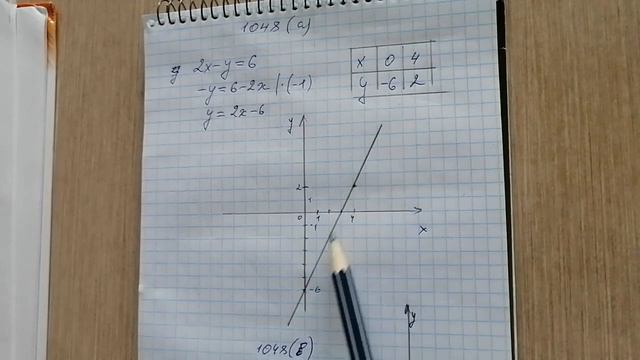 1048 (a)
2x-y=6
-y=6-2x |·(-1)
y=2x-6
x 0 4
y -6 2
y
2
1
0 1 4
-1
x
-6
1048(в)
y